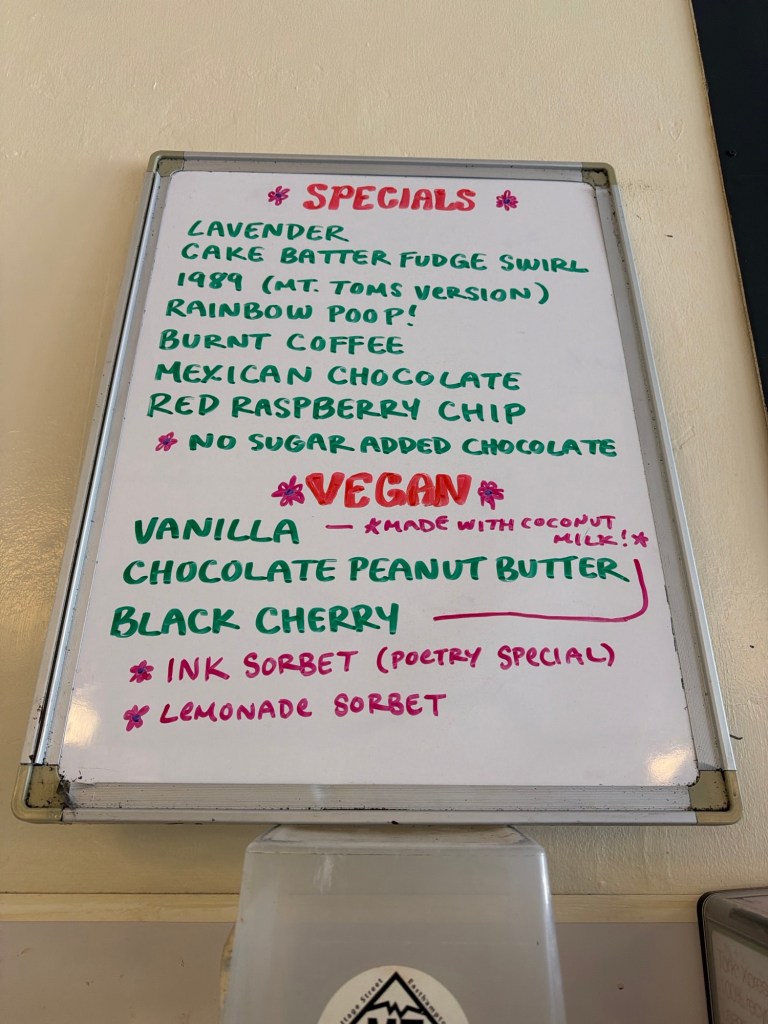 SPECIALS
LAVENDER
CAKE BATTER FUDGE SWIRL
1989 (MT. TOMS VERSION)
RAINBOW POOP!
BURNT COFFEE
MEXICAN CHOCOLATE
RED RASPBERRY CHIP
* NO SUGAR ADDED CHOCOLATE
VEGAN
VANILLA — *MADE WITH COCONUT
MILK!*
CHOCOLATE PEANUT BUTTER
BLACK CHERRY
* INK SORBET (POETRY SPECIAL)
* LEMONADE SORBET